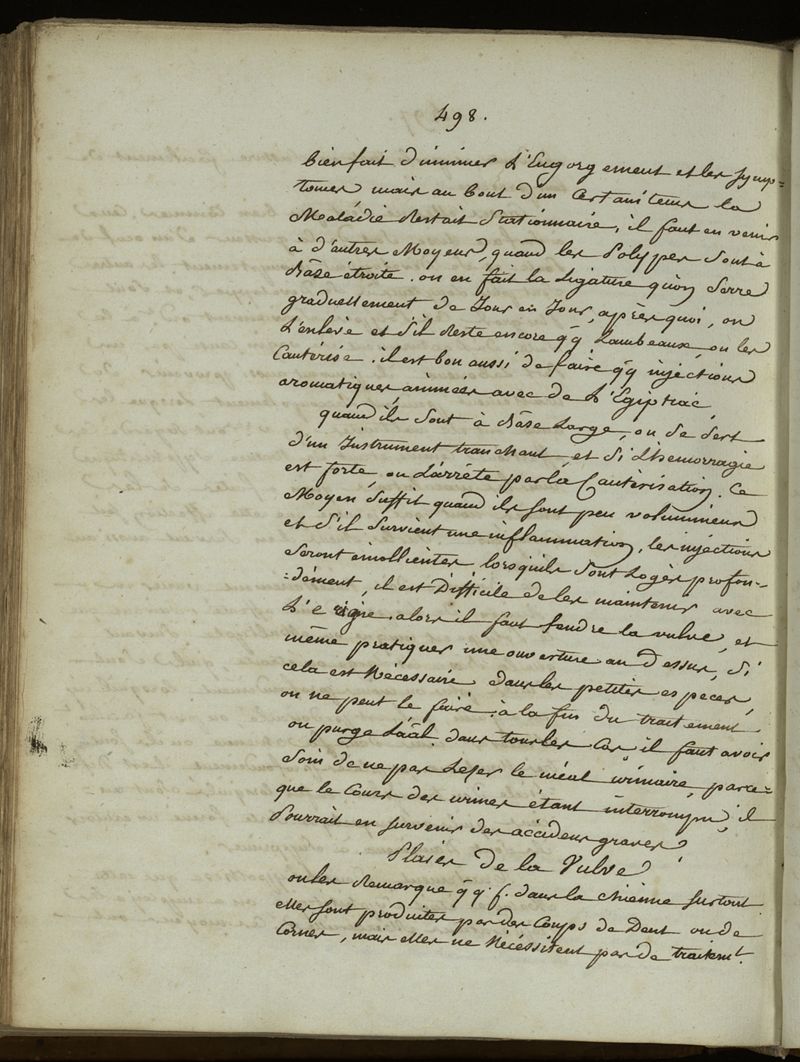 498.
bien fait diminuer L'Engorgement et les symp=
tomes mais au bout d'un certains tems la
Maladie Restait Stationnaire, il faut en venir
à d'autres Moyens, quand les Polypes sont à
Bâze étroite. on en fait la Ligature qu'on serre
graduellement de Jour en Jour, après quoi, on
L'enlève et s'il Reste encore qq Lambeaux on les
Cautérise. il est bon aussi de faire qq injections
aromatiques, animées avec de L'Egiptiac
quand ils sont à Bâze Large, on se sert
d'un Instrument tranchant, et si L'hemorragie
est forte on L'arrête par la Cautérisation. Ce
Moyen suffit quand ils sont peu volumineux
et s'il survient une inflammation, les injections
seront émollientes, lorsquils sont Logés profon=
=dément, il est Difficile de les maintenir avec
L'erigne. alors il faut fendre la vulve, et
même pratiquer une ouverture au dessus, si
cela est Nécessaire dans les petites especes,
on ne peut le faire. à la fin du traitement
on purge L'aâl. dans tous les Cas il faut avoir
soin de ne pas Leser le méat urinaire, parce=
que le Cours des urines étant interrompu, il
Pourrait en survenir des accidens graves.
Plaies de la Vulve
on les Remarque qq. f. dans la chienne surtout
elles sont produites par des Coups de Dent ou de
Cornes, mais elles ne Nécéssitent pas de traitemt.